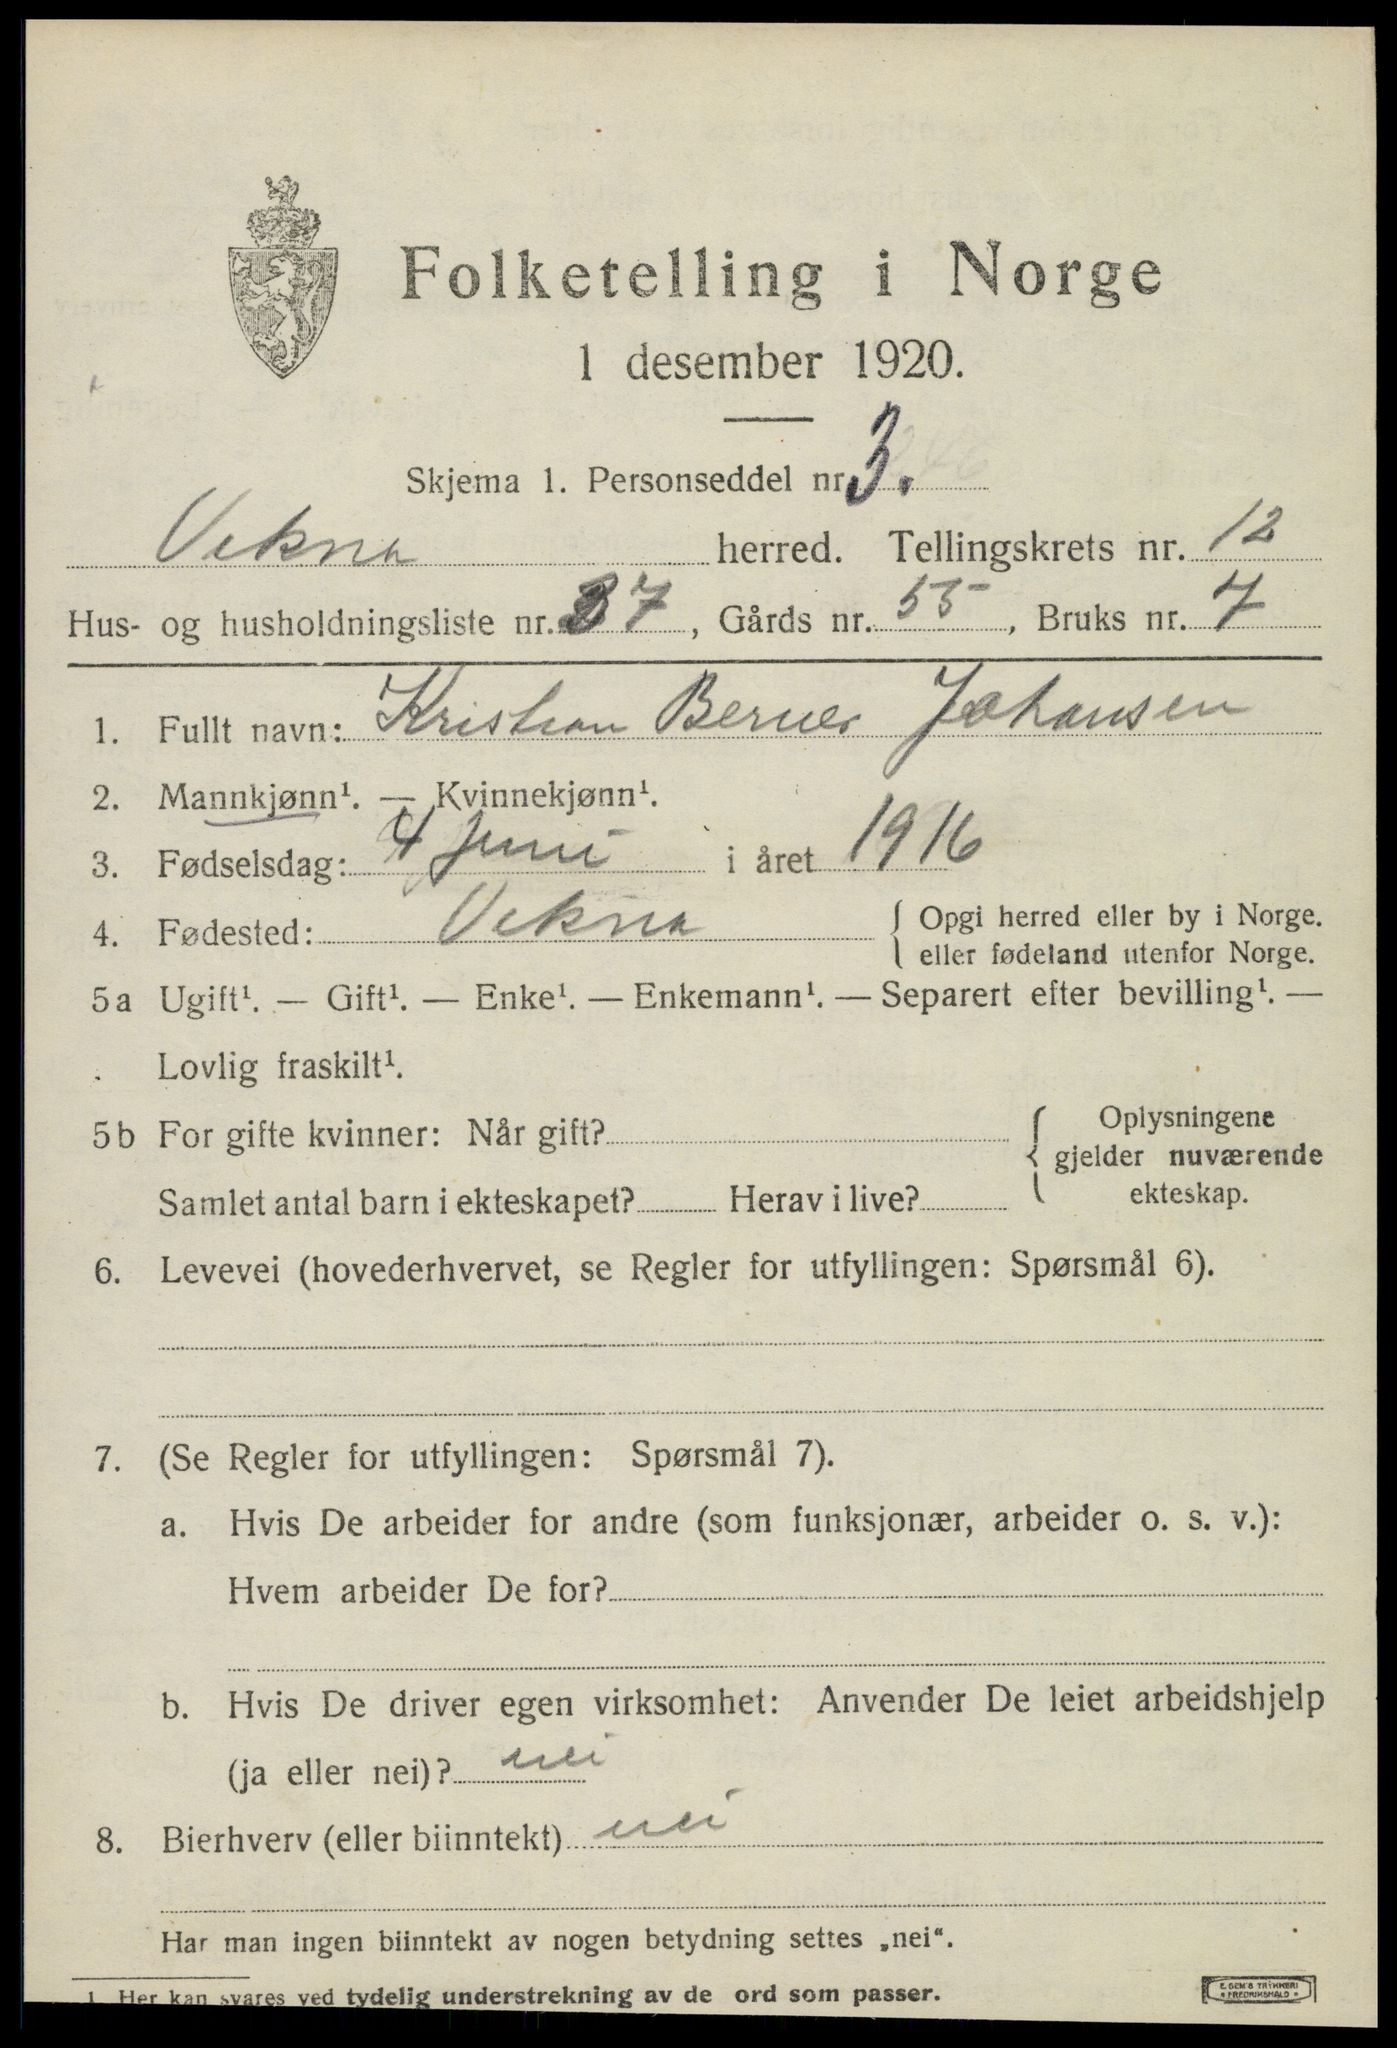 Folketelling i Norge
1 desember 1920.
Skjema 1. Personseddel nr. 3.
Vikna herred. Tellingskrets nr. 12
Hus- og husholdningsliste nr. 37, Gårds nr. 55, Bruks nr. 7
1. Fullt navn: Kristian Berner Johansen
2. Mannkjønn¹. — Kvinnekjønn¹.
3. Fødselsdag: 4 Juni i året 1916
4. Fødested: Vikna { Opgi herred eller by i Norge.
eller fødeland utenfor Norge.
5a Ugift¹. — Gift¹. — Enke¹. — Enkemann¹. — Separert efter bevilling¹. —
Lovlig fraskilt¹.
5b For gifte kvinner: Når gift? { Oplysningene
gjelder nuværende
Samlet antal barn i ekteskapet? Herav i live? ekteskap.
6. Levevei (hovederhvervet, se Regler for utfyllingen: Spørsmål 6).
7. (Se Regler for utfyllingen: Spørsmål 7).
a. Hvis De arbeider for andre (som funksjonær, arbeider o. s. v.):
Hvem arbeider De for?
b. Hvis De driver egen virksomhet: Anvender De leiet arbeidshjelp
(ja eller nei)? nei
8. Bierhverv (eller biinntekt) nei
Har man ingen biinntekt av nogen betydning settes „nei“.
1. Her kan svares ved tydelig understrekning av de ord som passer.
E. SEM'S TRYKKERI
FREDRIKSHALD